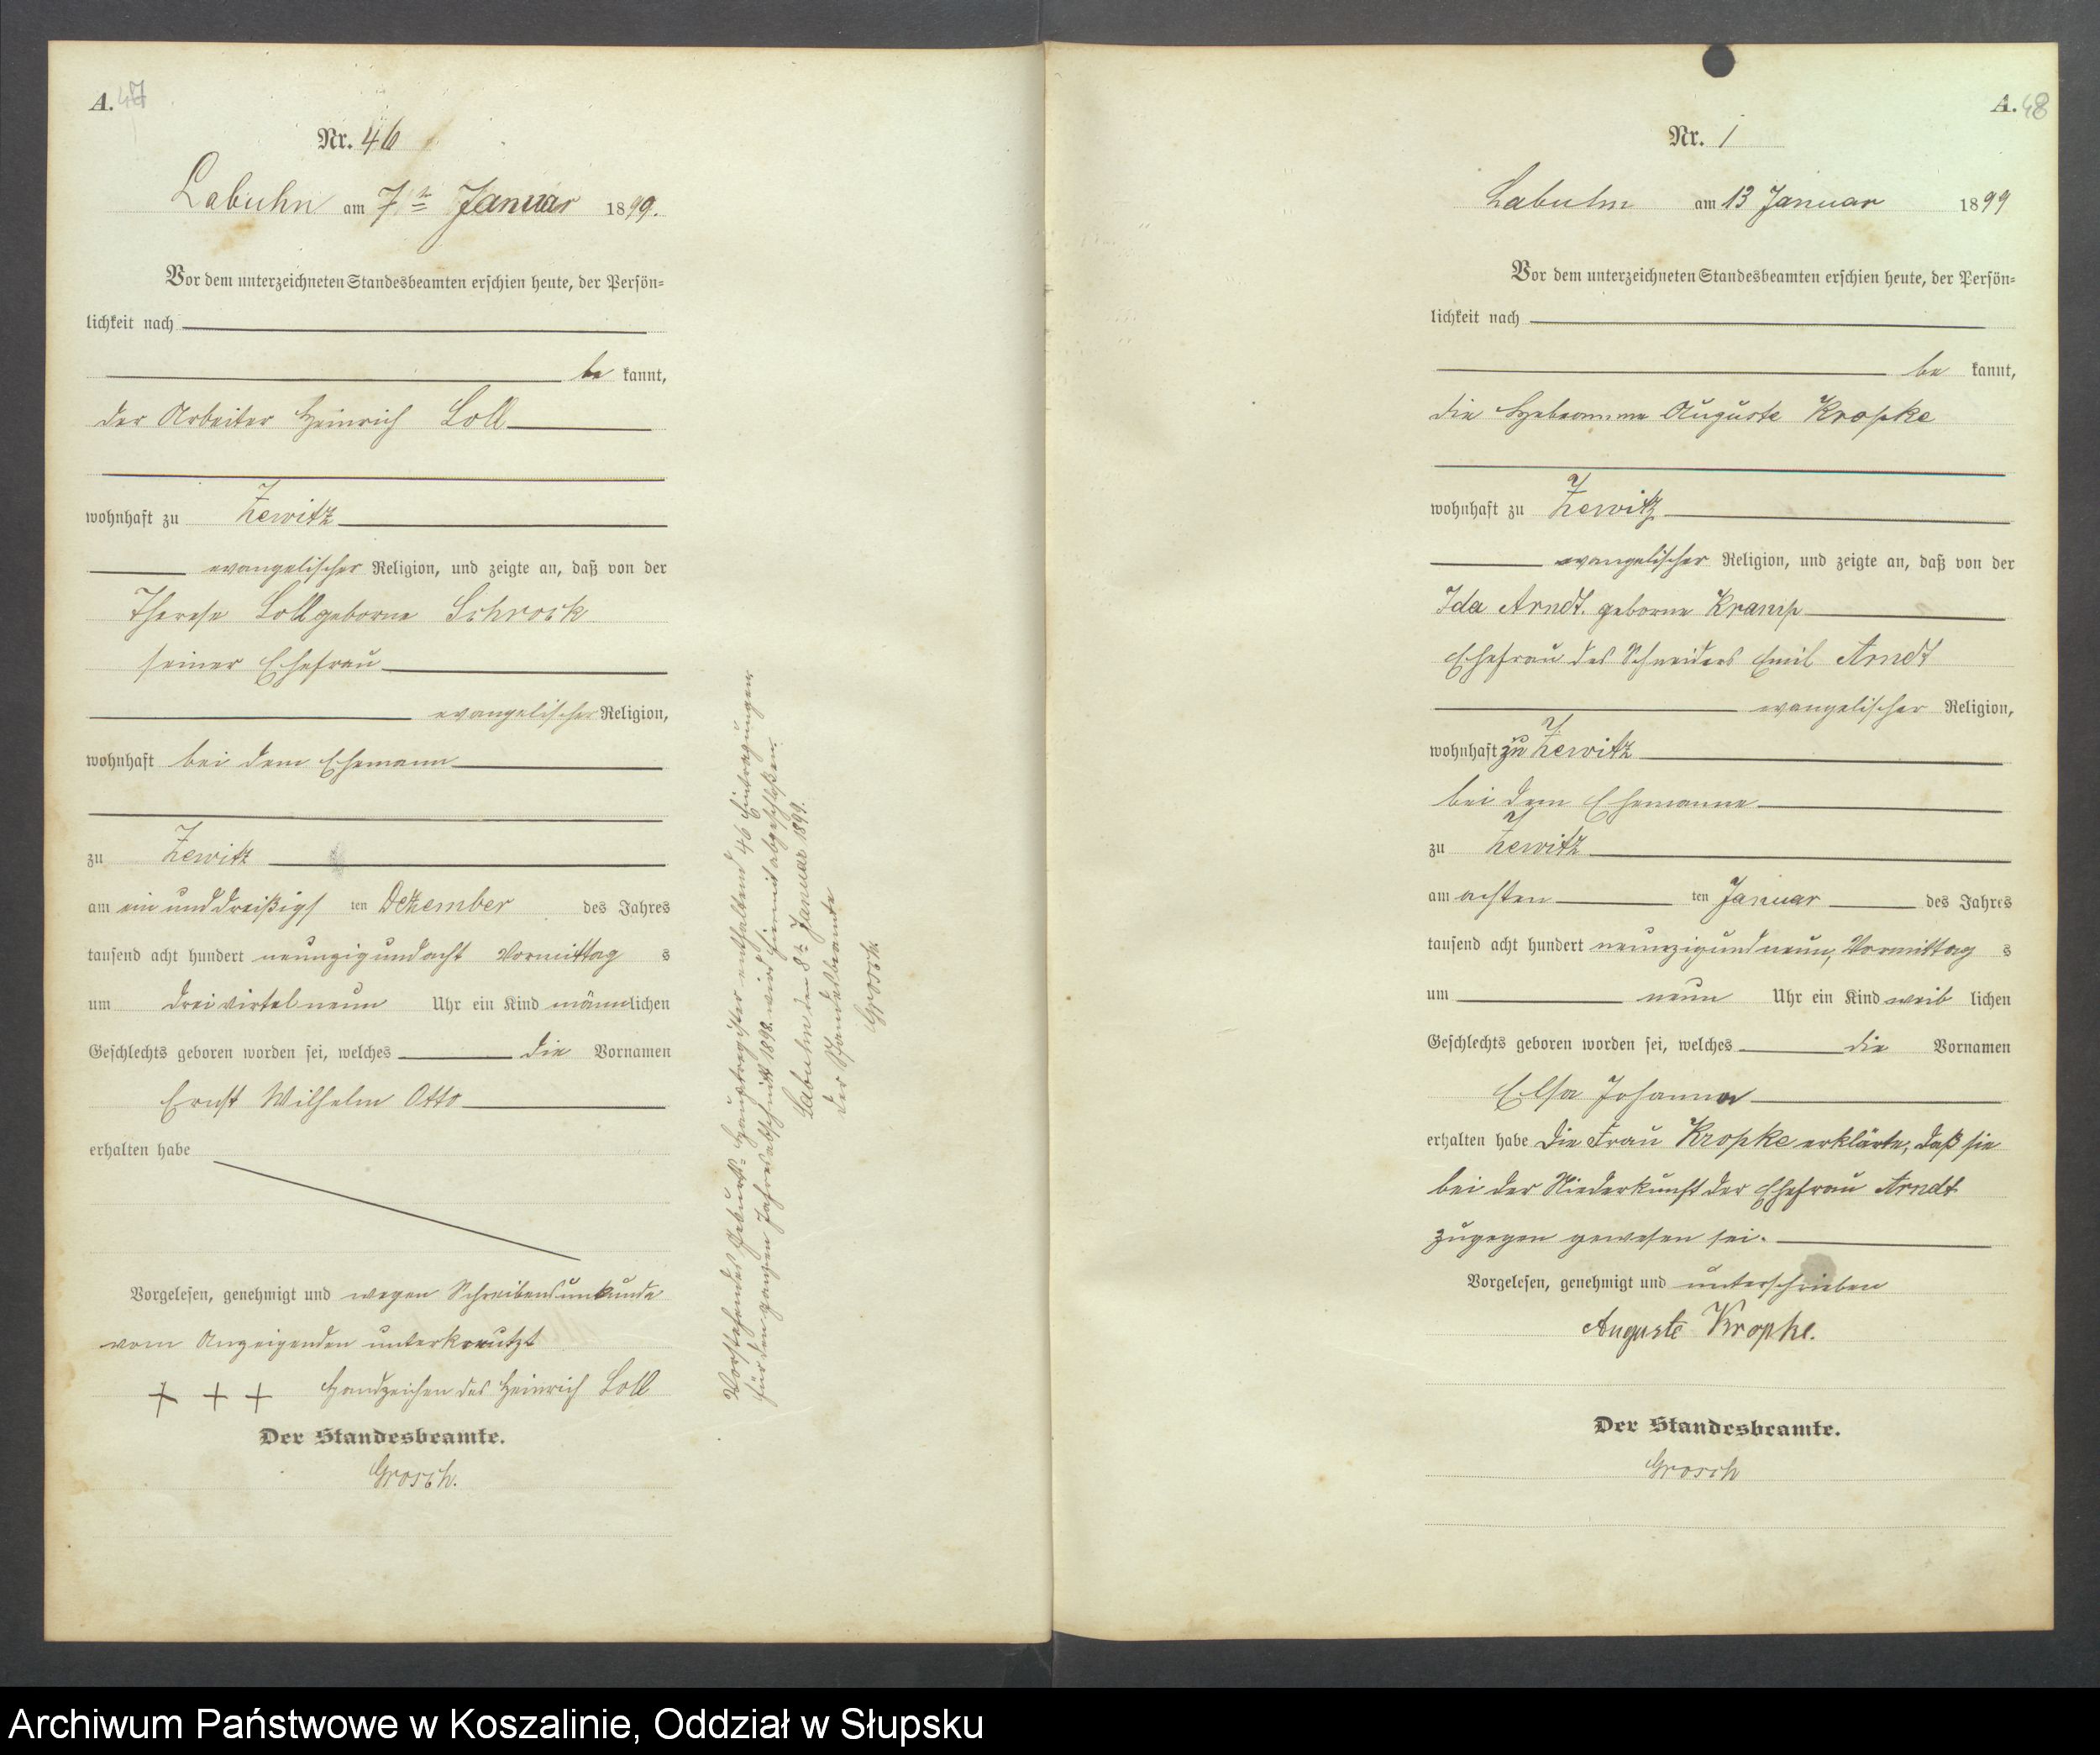 A. 47
Nr. 46
Labuhn am 7ten Januar 1899.
Vor dem unterzeichneten Standesbeamten erschien heute, der Persön-
lichkeit nach
be kannt,
der Arbeiter Heinrich Loll
wohnhaft zu Zewitz
evangelischer Religion, und zeigte an, daß von der
Therese Loll geborne Schrock
seiner Ehefrau
evangelischer Religion,
wohnhaft bei dem Ehemann
zu Zewitz
am ein und dreißigs ten Dezember des Jahres
tausend acht hundert neunzig und acht Vormittag s
um dreivirtel neun Uhr ein Kind männlichen
Geschlechts geboren worden sei, welches die Vornamen
Ernst Wilhelm Otto
erhalten habe
Vorgelesen, genehmigt und wegen Schreibensunkunde
vom Anzeigenden unterkreutzt
+ + + Handzeichen des Heinrich Loll
Der Standesbeamte.
Grosch.
Vorstehendes Geburts-Hauptregister enthaltend 46 Eintragungen
für den ganzen Jahresabschnitt 1898. wird hiermit abgeschloßen.
Labuhn den 8t Januar 1899.
Der Standesbeamte
Grosch
A. 48
Nr. 1
Labuhn am 13 Januar 1899
Vor dem unterzeichneten Standesbeamten erschien heute, der Persön-
lichkeit nach
be kannt,
die Hebeamme Auguste Kropke
wohnhaft zu Zewitz
evangelischer Religion, und zeigte an, daß von der
Ida Arndt. geborne Kramp
Ehefrau des Schneiders Emil Arndt
evangelischer Religion,
wohnhaft zu Zewitz
bei dem Ehemanne
zu Zewitz
am achten ten Januar des Jahres
tausend acht hundert neunzig und neun, Vormittag s
um neun Uhr ein Kind weib lichen
Geschlechts geboren worden sei, welches die Vornamen
Elsa Johanna
erhalten habe Die Frau Kropke erklärte, daß sie
bei der Niederkunft der Ehefrau Arndt
zugegen gewesen sei.
Vorgelesen, genehmigt und unterschrieben
Auguste Kropke.
Der Standesbeamte.
Grosch
Archiwum Państwowe w Koszalinie, Oddział w Słupsku